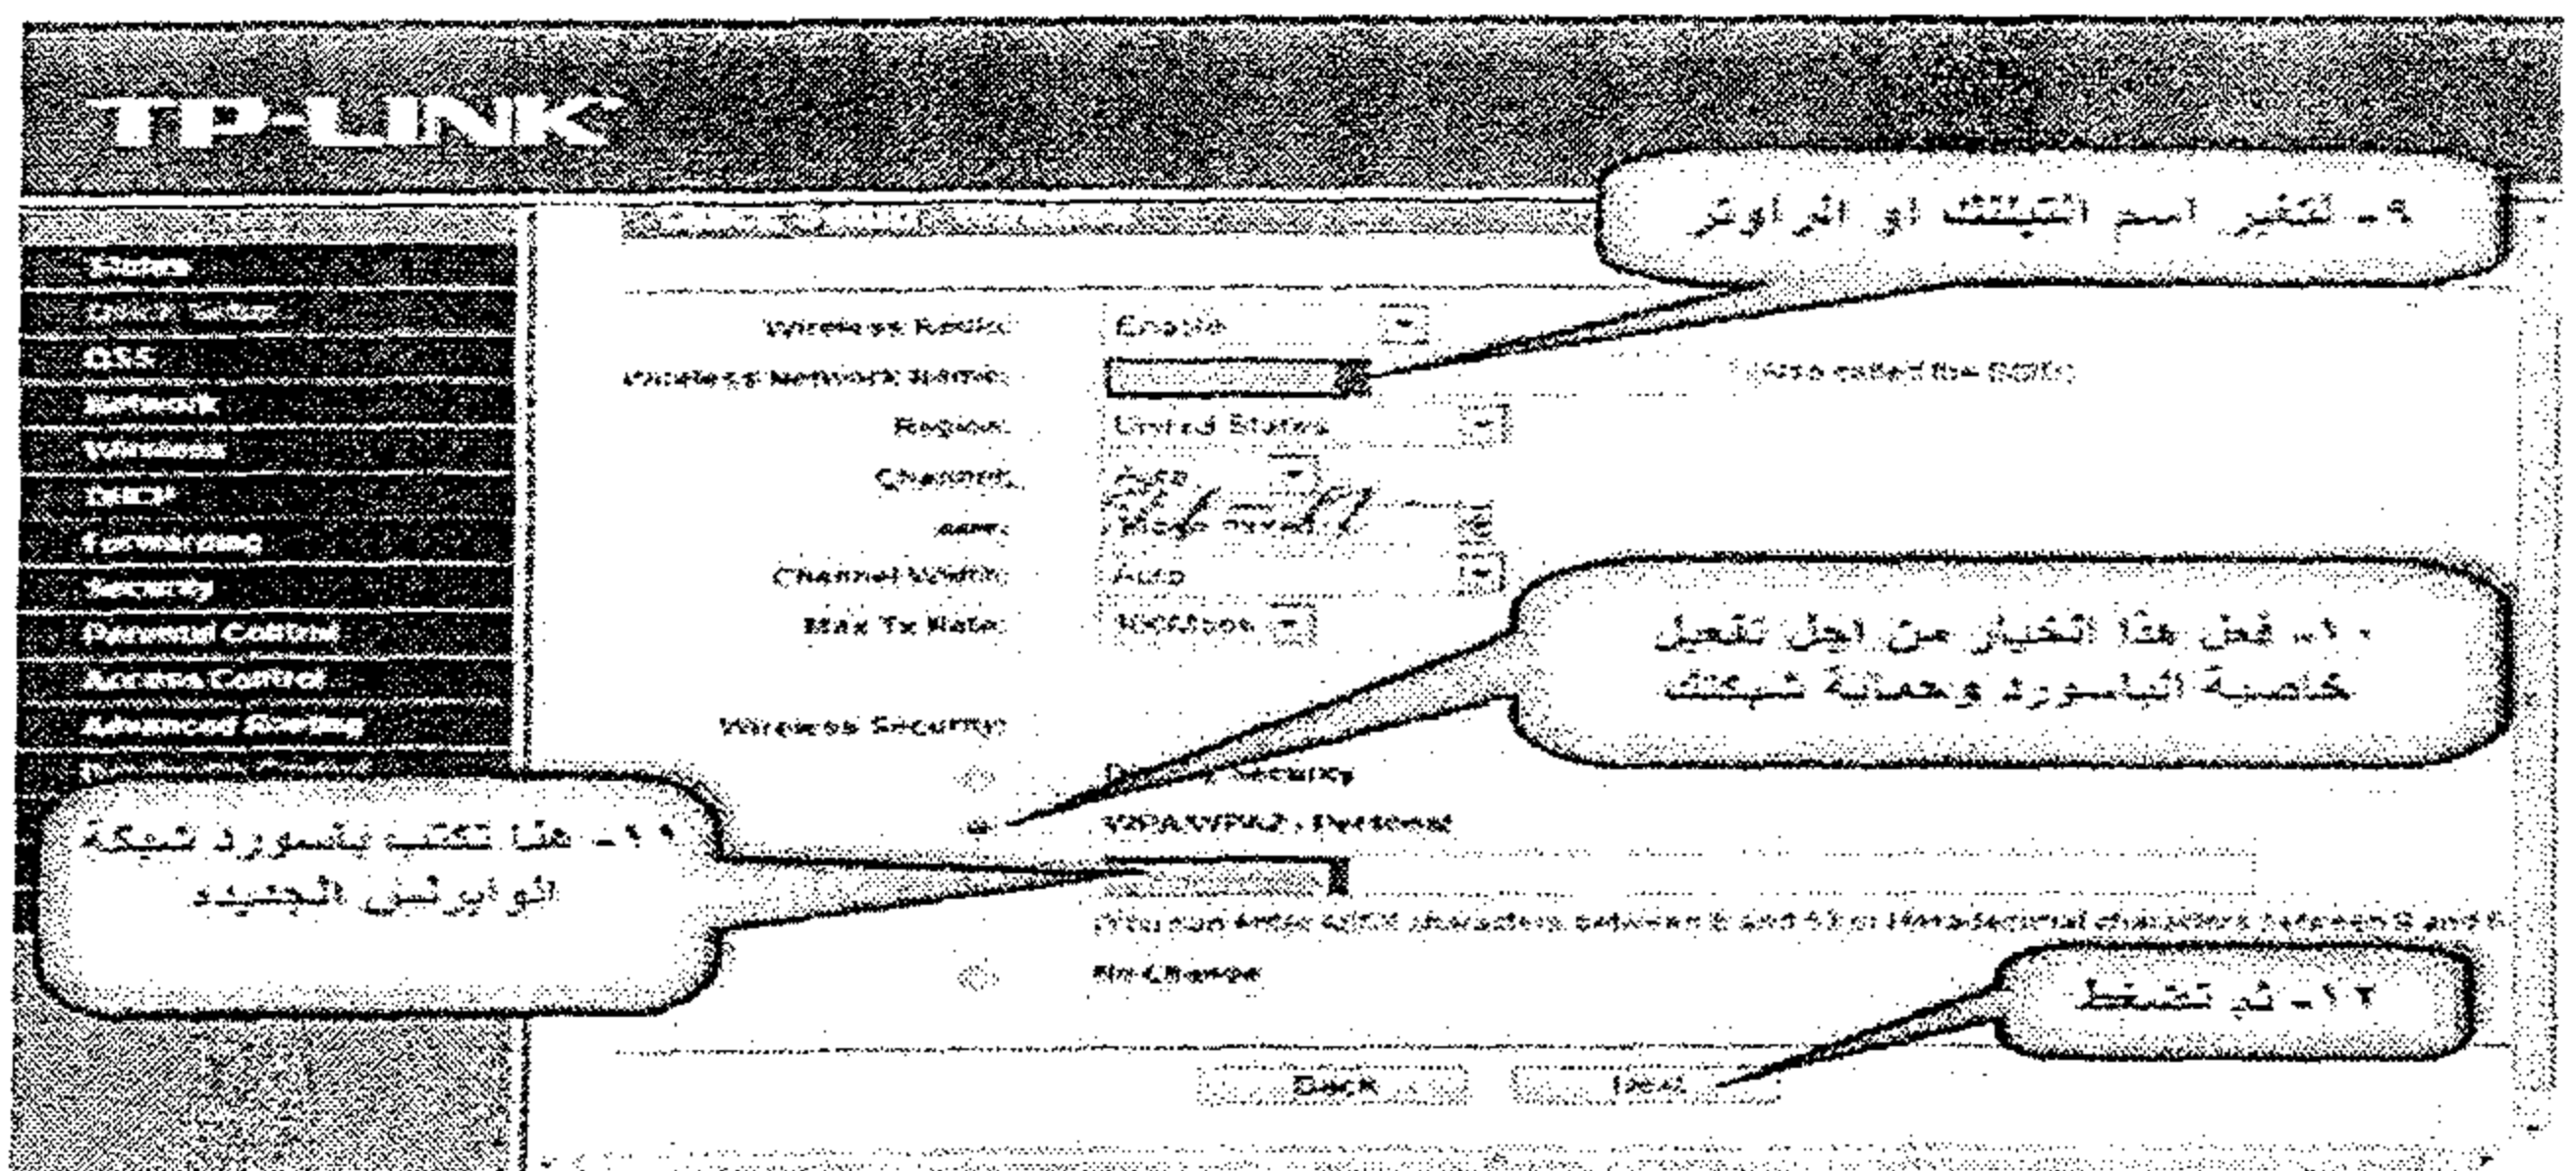 TP-LINK
٩- لتغير اسم الشبكة او الراوتر
Status
Quick Setup
QSS
Network
Wireless
DHCP
Forwarding
Security
Parental Control
Access Control
Advanced Routing
Wireless Radio: Enable
Wireless Network Name: (Also called the SSID)
Region: United States
Channel: Auto
Mode:
Channel Width: Auto
Max Tx Rate:
١٠- فعل هذا الخيار من اجل تفعيل
خاصية الباسورد وحماية شبكتك
Wireless Security:
Security
WPA/WPA2 - Personal
١١- هنا تكتب باسورد شبكة
الوايرلس الجديد
(You can enter ASCII characters between 8 and 63 or Hexadecimal characters between 8 and
No Change
١٢- ثم تضغط
Back Next